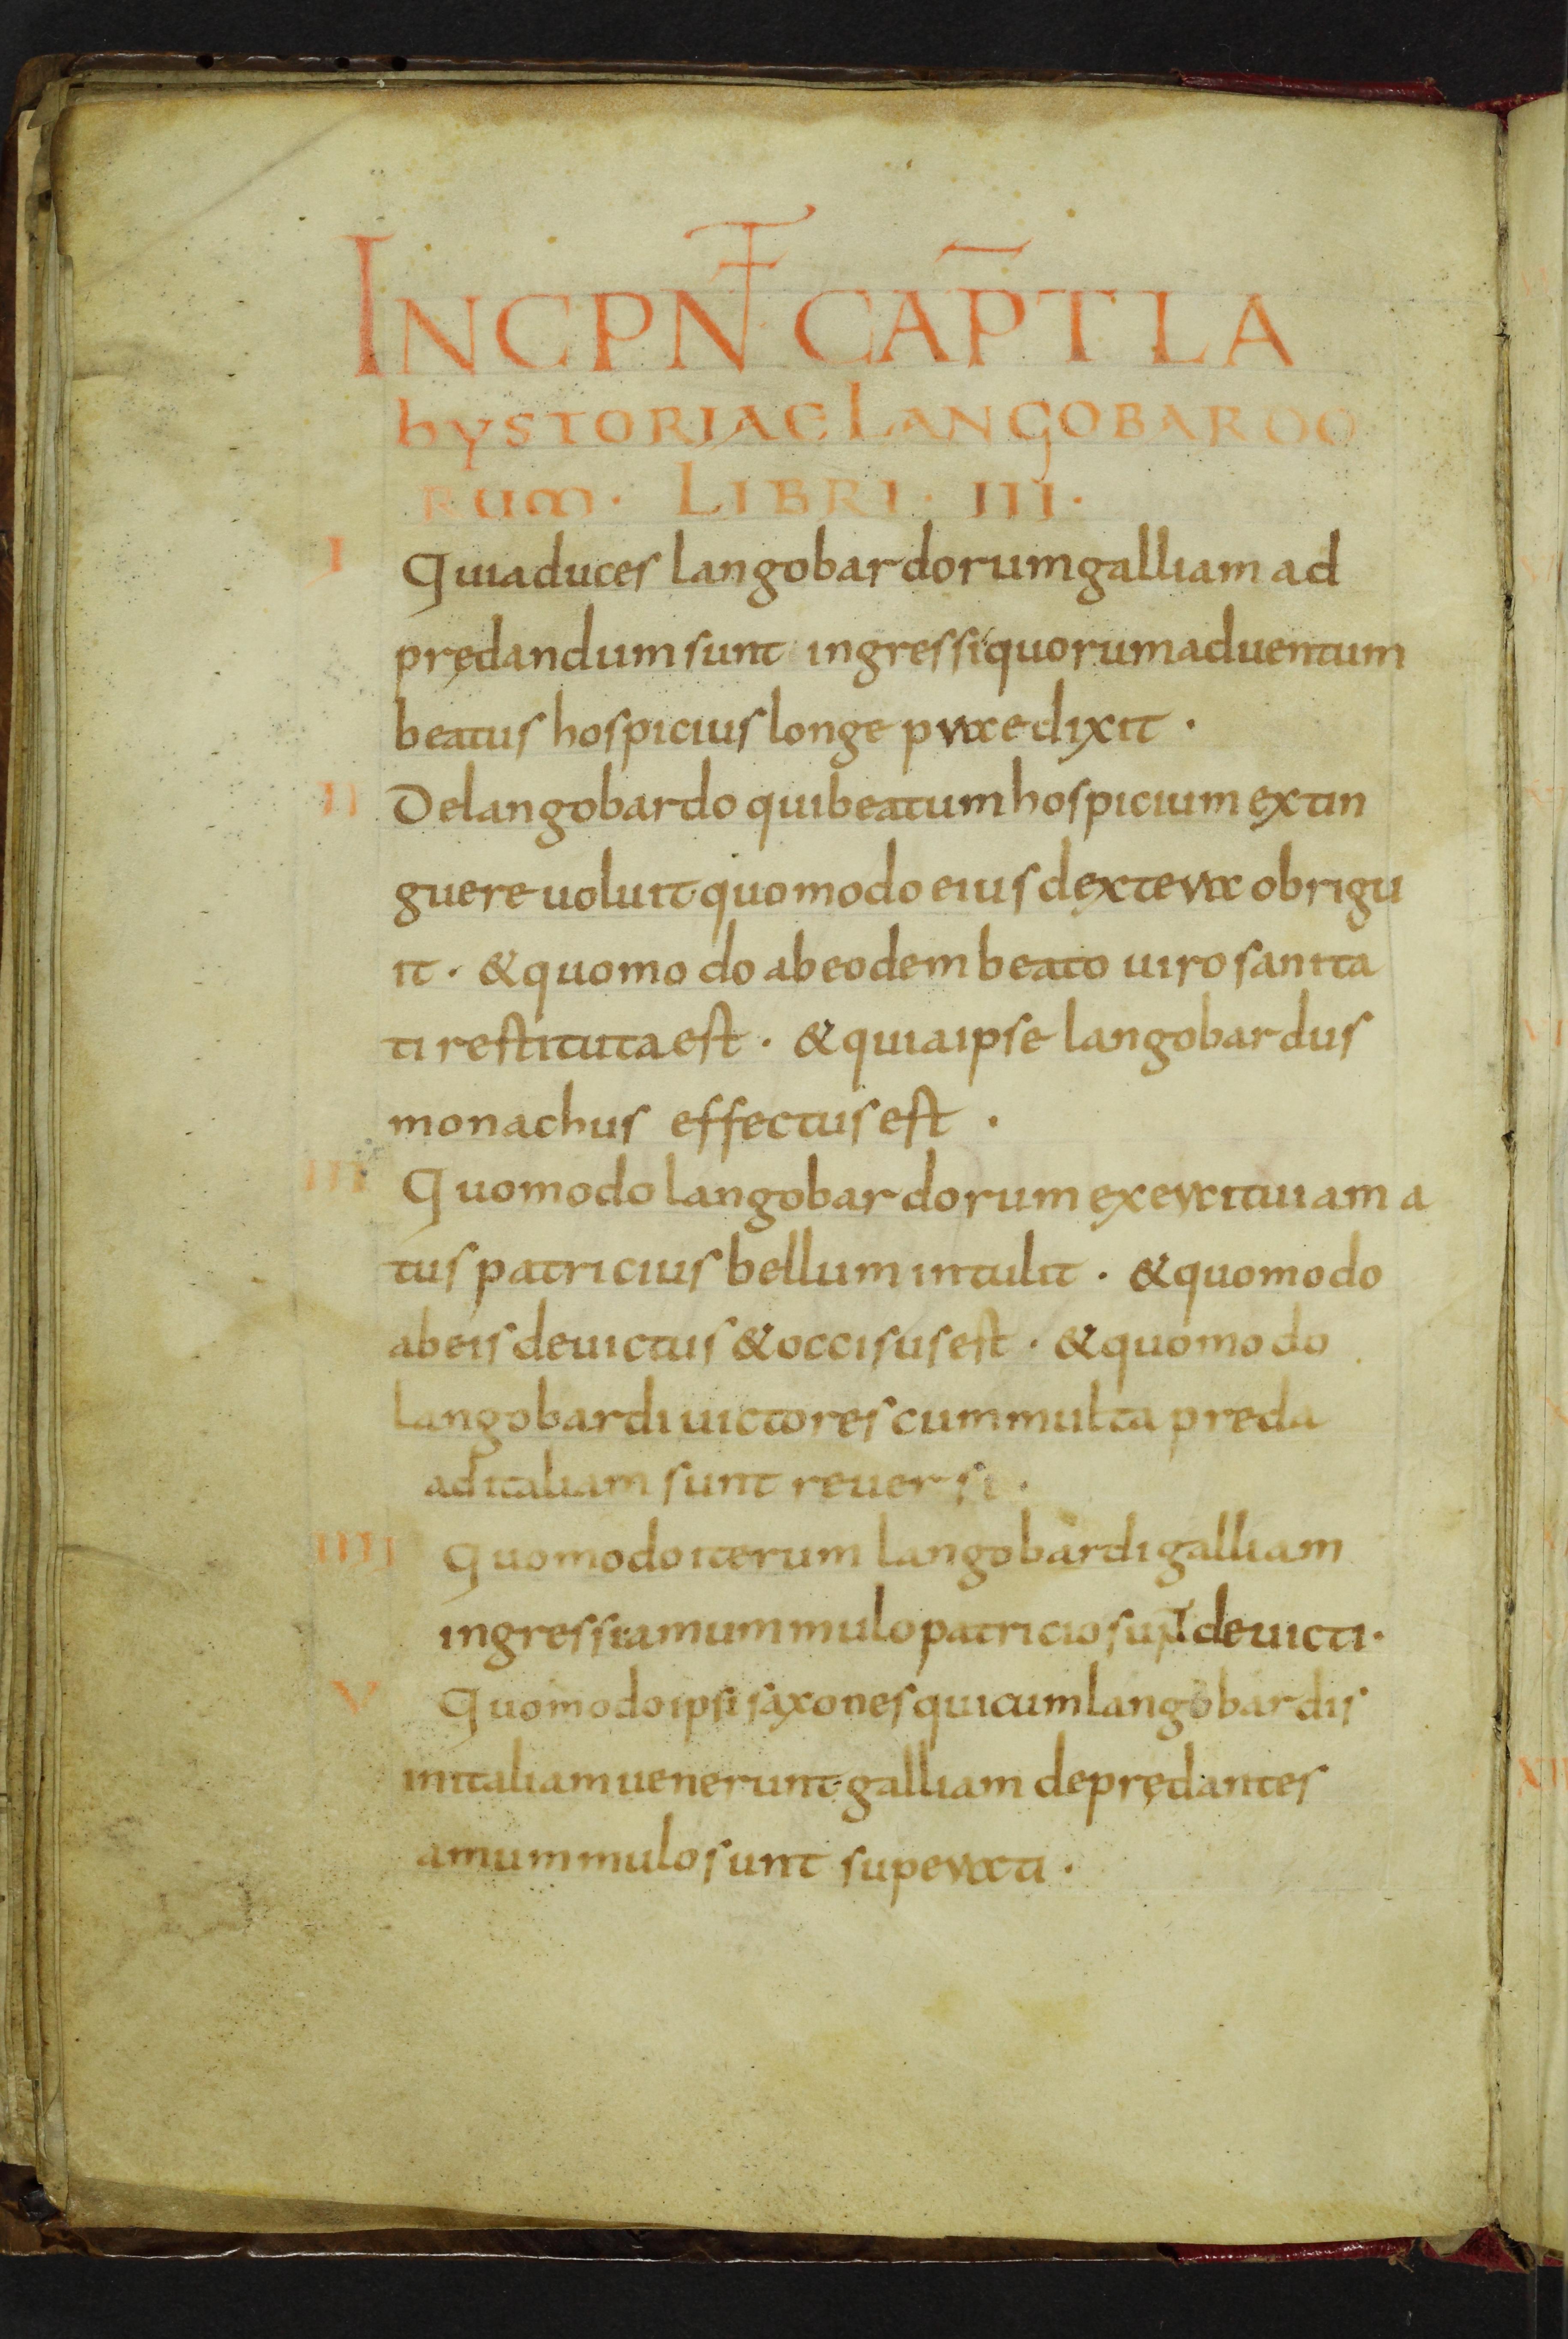 INCPNT̅ CAP̅TLA
hYSTORIAE LANGOBARDO
RUM · LIBRI · III ·
I Quia duces langobardorum galliam ad
prędandum sunt ingressi quorum aduentum
beatus hospicius longe praedixit ·
II De langobardo qui beatum hospicium extin
guere uoluit · quomodo eius dextera obrigu
it · & quomodo ab eodem beato uiro sanita
ti restituta est · & quia ipse langobardus
monachus effectus est ·
III Quomodo langobardorum exercitui ama
tus patricius bellum intulit · & quomodo
ab eis deuictus & occisus est · & quomodo
langobardi uictores cum multa preda
ad italiam sunt reuersi ·
IIII Quomodo iterum langobardi galliam
ingressi a mummulo patricio sup̅ deuicti ·
V Quomodo ipsi saxones qui cum langobardis
in italiam uenerunt · galliam deprędantes
a mummulo sunt superati ·